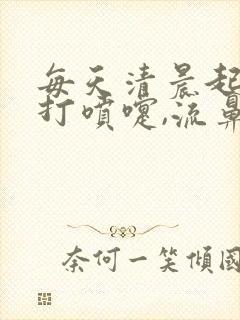 每天清晨起
打噴嚏,流鼻
奈何一笑傾國